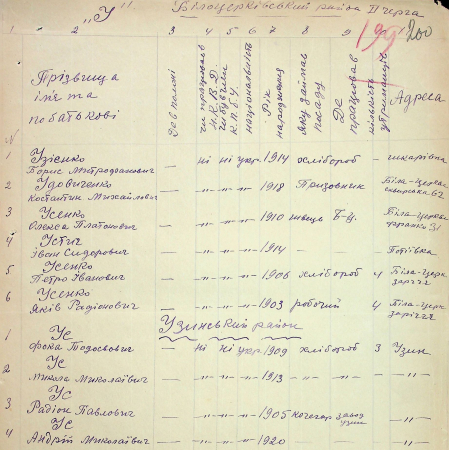 "У" Білоцерківський район II черга
199 200
1 2 3 4 5 6 7 8 9 10 11
№ Прізвища ім'я та по батькові Де в полоні чи працював Н.К.В.Д. чи був член К.П.б.У. національність Рік народження яку займав посаду Де працював кількість утриманців Адреса
1 Узієнко
Борис Митрофанович — ні ні укр. 1914 хлібороб — шкарівка
2 Удовиченко
Костянтин Михайлович — „ „ „ 1918 Призовник Біла-Церква 62
3 Усенко
Олекса Платонович — „ „ „ 1910 швець Б-Ц. Біла-Церква Франко 31
4 Устич
Іван Сидорович — „ „ „ 1914 — Потіївка
5 Усенко
Петро Іванович — „ „ „ 1906 хлібороб 4 Біла-Церк заріччя
6 Усенко
Яків Радіонович — „ „ „ 1903 робочий 4 Біла-Церк заріччя
Узинський район
1 Ус
Фока Тодосьович — ні ні укр. 1909 хлібороб 3 Узин
2 Ус
Микола Миколаївич — „ „ „ 1913 „ „ — „
3 Ус
Радіон Павлович — „ „ „ 1905 кочегар завод Узин „
4 Ус
Андрій Миколаївич — „ „ „ 1920 — — „